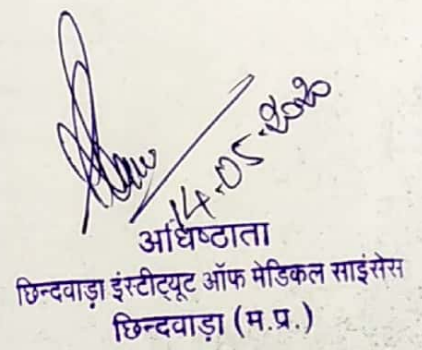 14.05.2020
अधिष्ठाता
छिन्दवाड़ा इंस्टीट्यूट ऑफ मेडिकल साइंसेस
छिन्दवाड़ा (म.प्र.)